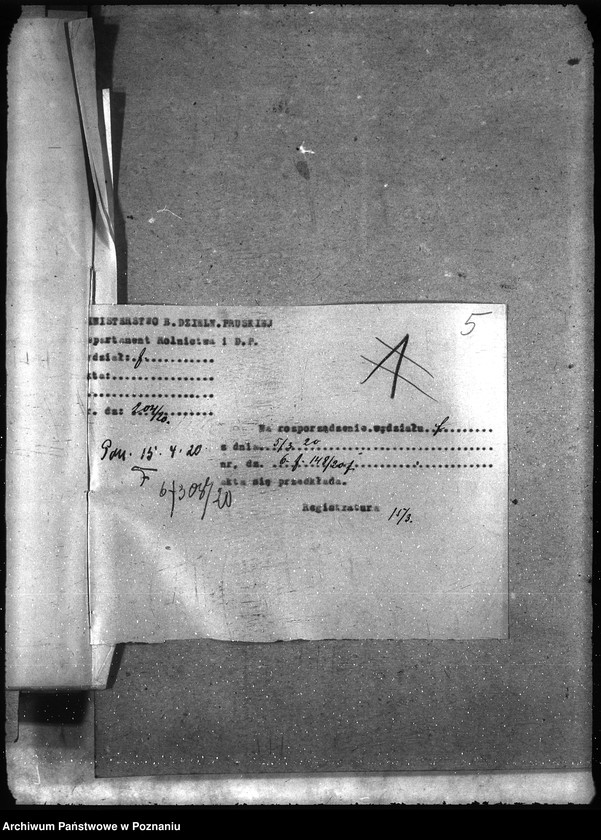 5
1
MINISTERSTWO B. DZIELN. PRUSKIEJ
partament Rolnictwa i D.P.
dział: f.
kta:
r. dz:
Na rozporządzenie wydziału f.
z dnia 5/3. 20
nr. dz. 6. f. 148/20 f.
akta się przedkłada.
Pon. 15. 4. 20
F
6f308/20
Registratura 15/3.
Archiwum Państwowe w Poznaniu